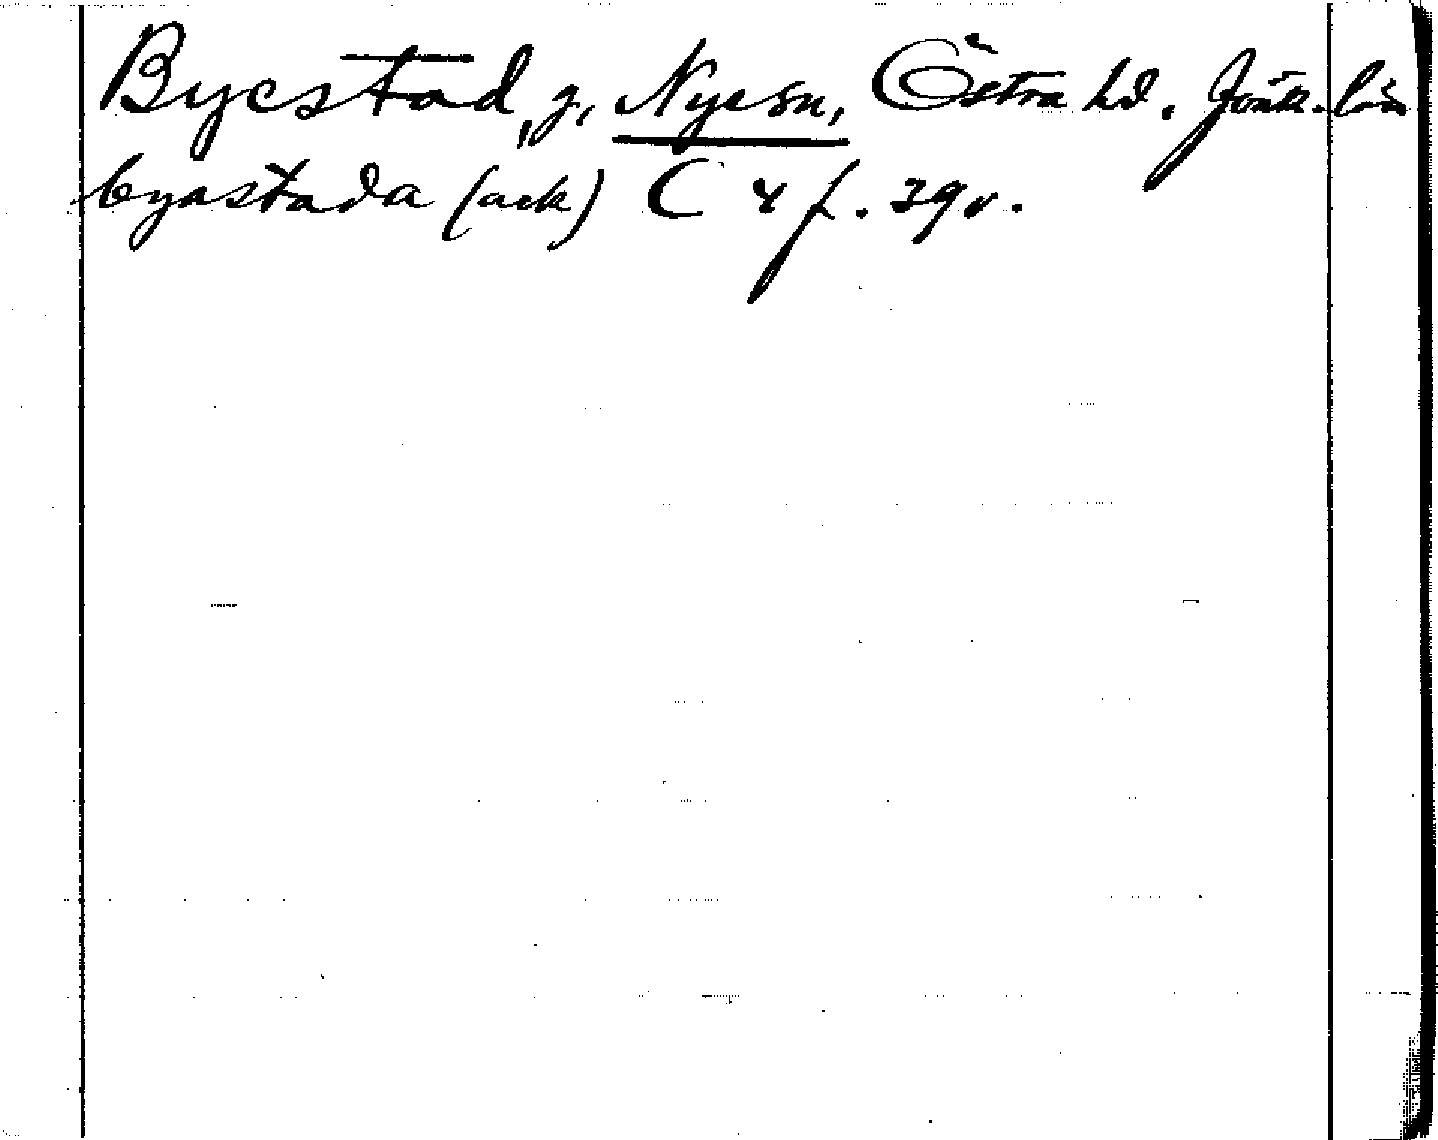 Byestad, g, Nye sn, Östra hd. Jönk. län
byastada (ack) C 4 f. 39v.